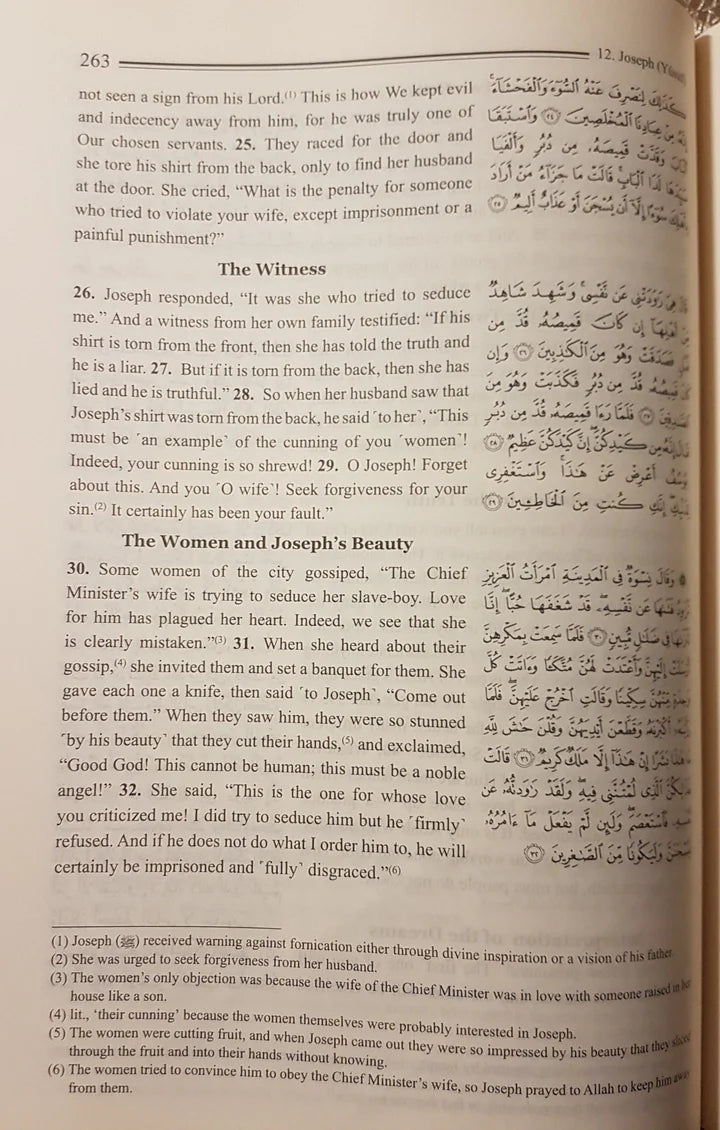 263
12. Joseph
not seen a sign from his Lord.⁽¹⁾ This is how We kept evil
and indecency away from him, for he was truly one of
Our chosen servants. 25. They raced for the door and
she tore his shirt from the back, only to find her husband
at the door. She cried, “What is the penalty for someone
who tried to violate your wife, except imprisonment or a
painful punishment?”
كَذَٰلِكَ لِنَصْرِفَ عَنْهُ ٱلسُّوٓءَ وَٱلْفَحْشَآءَ
إِنَّهُۥ مِنْ عِبَادِنَا ٱلْمُخْلَصِينَ ٢٤ وَٱسْتَبَقَا
وَقَدَّتْ قَمِيصَهُۥ مِن دُبُرٍ وَأَلْفَيَا
لَدَا ٱلْبَابِ قَالَتْ مَا جَزَآءُ مَنْ أَرَادَ
سُوٓءًا إِلَّآ أَن يُسْجَنَ أَوْ عَذَابٌ أَلِيمٌ ٢٥
The Witness
26. Joseph responded, “It was she who tried to seduce
me.” And a witness from her own family testified: “If his
shirt is torn from the front, then she has told the truth and
he is a liar. 27. But if it is torn from the back, then she has
lied and he is truthful.” 28. So when her husband saw that
Joseph’s shirt was torn from the back, he said ˹to her˺, “This
must be ˹an example˺ of the cunning of you ˹women˺!
Indeed, your cunning is so shrewd! 29. O Joseph! Forget
about this. And you ˹O wife˺! Seek forgiveness for your
sin.⁽²⁾ It certainly has been your fault.”
هِىَ رَٰوَدَتْنِى عَن نَّفْسِى وَشَهِدَ شَاهِدٌ
إِن كَانَ قَمِيصُهُۥ قُدَّ مِن
فَصَدَقَتْ وَهُوَ مِنَ ٱلْكَٰذِبِينَ ٢٦ وَإِن
قُدَّ مِن دُبُرٍ فَكَذَبَتْ وَهُوَ مِنَ
فَلَمَّا رَءَا قَمِيصَهُۥ قُدَّ مِن دُبُرٍ
مِن كَيْدِكُنَّ إِنَّ كَيْدَكُنَّ عَظِيمٌ ٢٨
أَعْرِضْ عَنْ هَٰذَا وَٱسْتَغْفِرِى
إِنَّكِ كُنتِ مِنَ ٱلْخَاطِـِٔينَ ٢٩
The Women and Joseph’s Beauty
30. Some women of the city gossiped, “The Chief
Minister’s wife is trying to seduce her slave-boy. Love
for him has plagued her heart. Indeed, we see that she
is clearly mistaken.”⁽³⁾ 31. When she heard about their
gossip,⁽⁴⁾ she invited them and set a banquet for them. She
gave each one a knife, then said ˹to Joseph˺, “Come out
before them.” When they saw him, they were so stunned
˹by his beauty˺ that they cut their hands,⁽⁵⁾ and exclaimed,
“Good God! This cannot be human; this must be a noble
angel!” 32. She said, “This is the one for whose love
you criticized me! I did try to seduce him but he ˹firmly˺
refused. And if he does not do what I order him to, he will
certainly be imprisoned and ˹fully˺ disgraced.”⁽⁶⁾
وَقَالَ نِسْوَةٌ فِى ٱلْمَدِينَةِ ٱمْرَأَتُ ٱلْعَزِيزِ
عَن نَّفْسِهِۦ قَدْ شَغَفَهَا حُبًّا إِنَّا
فِى ضَلَٰلٍ مُّبِينٍ ٣٠ فَلَمَّا سَمِعَتْ بِمَكْرِهِنَّ
إِلَيْهِنَّ وَأَعْتَدَتْ لَهُنَّ مُتَّكَـًٔا وَءَاتَتْ كُلَّ
مِّنْهُنَّ سِكِّينًا وَقَالَتِ ٱخْرُجْ عَلَيْهِنَّ فَلَمَّا
أَكْبَرْنَهُۥ وَقَطَّعْنَ أَيْدِيَهُنَّ وَقُلْنَ حَٰشَ لِلَّهِ
هَٰذَا بَشَرًا إِنْ هَٰذَآ إِلَّا مَلَكٌ كَرِيمٌ ٣١ قَالَتْ
ٱلَّذِى لُمْتُنَّنِى فِيهِ وَلَقَدْ رَٰوَدتُّهُۥ عَن
فَٱسْتَعْصَمَ وَلَئِن لَّمْ يَفْعَلْ مَآ ءَامُرُهُۥ
وَلَيَكُونًا مِّنَ ٱلصَّٰغِرِينَ ٣٢
(1) Joseph (ﷺ) received warning against fornication either through divine inspiration or a vision of his father.
(2) She was urged to seek forgiveness from her husband.
(3) The women’s only objection was because the wife of the Chief Minister was in love with someone raised in her
house like a son.
(4) lit., ‘their cunning’ because the women themselves were probably interested in Joseph.
(5) The women were cutting fruit, and when Joseph came out they were so impressed by his beauty that they sliced
through the fruit and into their hands without knowing.
(6) The women tried to convince him to obey the Chief Minister’s wife, so Joseph prayed to Allah to keep him away
from them.